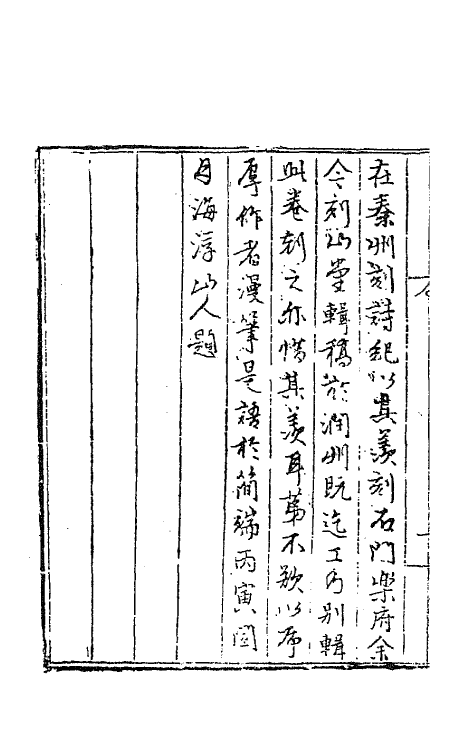 在秦州刻詩紀以其羨刻石門樂府余
今刻山堂輯稿於潤州既迄工乃别輯
此卷刻之亦惜其羨耳第不敢以序
辱作者漫筆是語於簡端丙寅閏
月海浮山人題